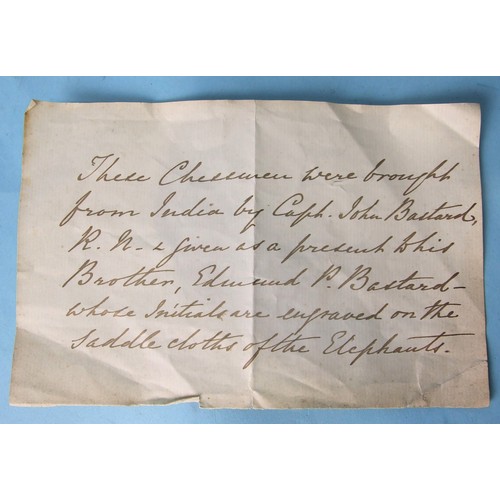 These Chessmen were brought
from India by Capt. John Bastard,
R. N. & given as a present to his
Brother, Edmund P. Bastard -
whose Initials are engraved on the
Saddle cloths of the Elephants.